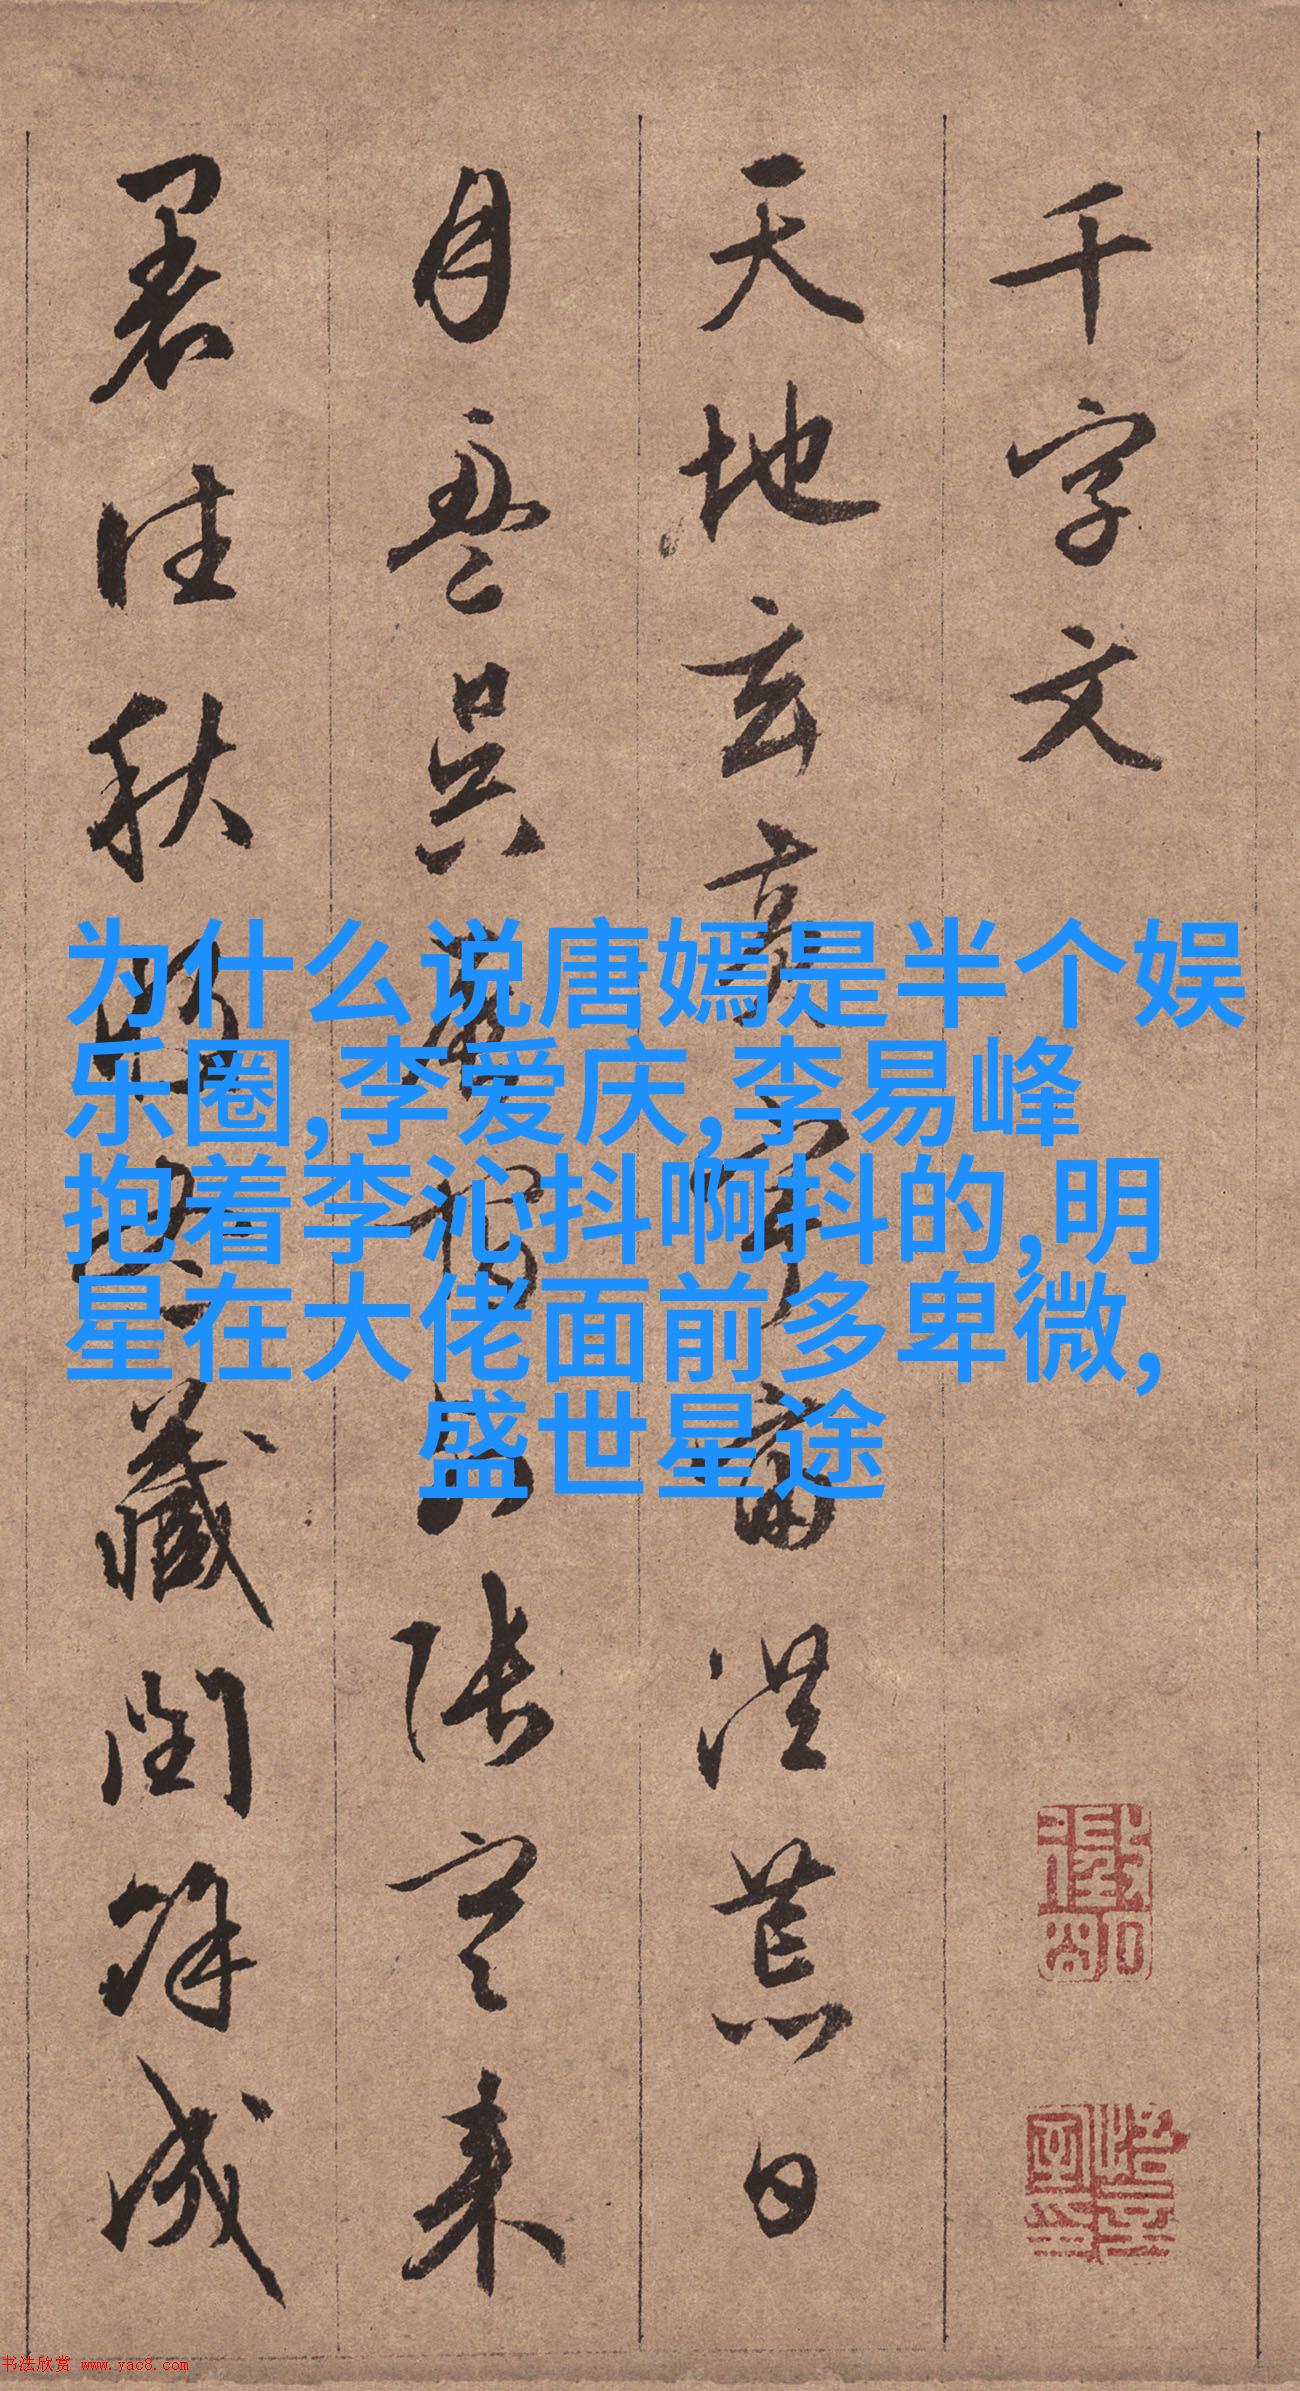 千字文
天地玄黄宇宙洪荒日
月盈昃辰宿列張寒来
暑往秋收冬藏閏餘成
为什么说唐嫣是半个娱
乐圈,李爱庆,李易峰
抱着李沁抖啊抖的,明
星在大佬面前多卑微,
盛世星途
书法欣赏 www.yac8.com